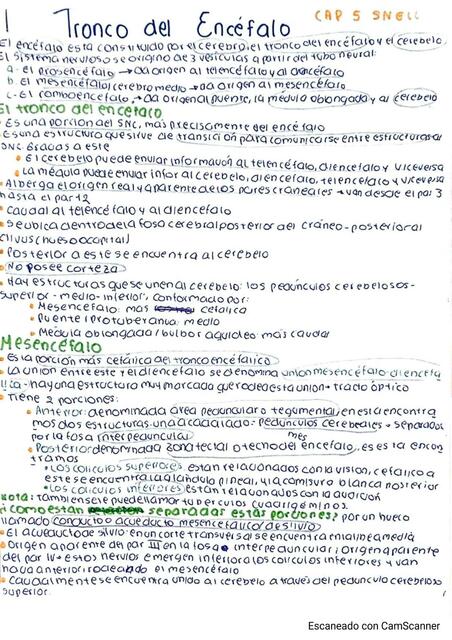 1 Tronco del Encéfalo CAP 5 SNELL
El encéfalo esta constituido por el cerebro, el tronco del encéfalo y el cerebelo.
El sistema nervioso se origina de 3 vesículas a partir del tubo neural:
a- el prosencéfalo → da origen al telencéfalo y al diencéfalo
b. El mesencéfalo/cerebro medio → da origen al mesencéfalo
c- El rombo encéfalo → da origen al puente, la médula oblongada y al cerebelo
El tronco del encéfalo
• Es una porción del SNC, más precisamente del encéfalo
• Es una estructura que sirve de transición para comunicarse entre estructuras del
SNC. Gracias a este
• El cerebelo puede enviar información al telencéfalo, diencéfalo y viceversa
• La médula puede enviar infor al cerebelo, diencéfalo, telencéfalo y viceversa
• Alberga el origen real y aparente de los pares craneales → van desde el par 3
hasta el par 12
• Caudal al telencéfalo y al diencéfalo
• Se ubica dentro de la fosa cerebral posterior del cráneo - posterior al
clivus (hueso occipital)
• Posterior a este se encuentra el cerebelo
• No posee corteza
• Hay estructuras que se unen al cerebelo: los pedúnculos cerebelosos -
superior - medio - inferior, conformado por:
• Mesencéfalo: más cefálica
• Puente / protuberancia: medio
• Médula oblongada / bulbo raquídeo: más caudal
Mesencéfalo
• Es la porción más cefálica del tronco encefálico
• La unión entre este y el diencéfalo se denomina unión mesencéfalo diencefá
lica - hay una estructura muy marcada que rodea esta unión → tracto óptico
• Tiene 2 porciones:
• Anterior: denominada área peduncular o tegmental, en esta encontra
mos dos estructuras una a cada lado → pedúnculos cerebrales → separados
por la fosa interpeduncular
• Posterior denominada zona tectal o tecno del mesencéfalo, es esta encon
tramos
• Los colículos superiores están relacionados con la visión, cefálico a
este se encuentra la glándula pineal, y la comisura blanca posterior
• Los colículos inferiores están relacionados con la audición
Nota: también se puede llamar tubérculos cuadrigéminos.
¿Cómo están separadas estas porciones? por un hueco
llamado conducto o acueducto mesencefálico / de silvio
• El acueducto de silvio: en un corte transversal se encuentra en la línea media
• Origen aparente del par III en la fosa interpeduncular; origen aparente
del par IV → estos nervios emergen inferior a los colículos inferiores y van
hacia anterior rodeando el mesencéfalo
• Caudalmente se encuentra unido al cerebelo a través del pedúnculo cerebeloso
superior.
Escaneado con CamScanner